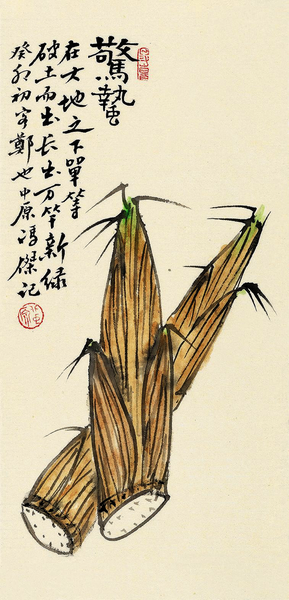 驚蟄
在大地之下單等
破土而出长出万竿新绿
癸卯初宇鄭也中原馮傑記